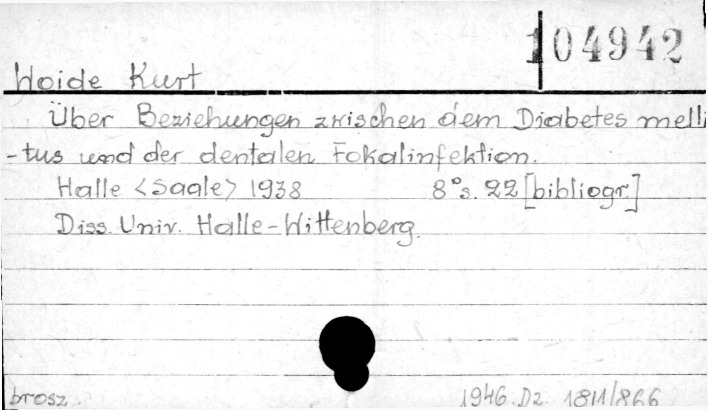 104942
Woide Kurt
Über Beziehungen zwischen dem Diabetes melli
-tus und der dentalen Fokalinfektion.
Halle <Saale> 1938 8° s. 22 [bibliogr.]
Diss. Univ. Halle-Wittenberg.
brosz. 1946. Dz. 1811/866